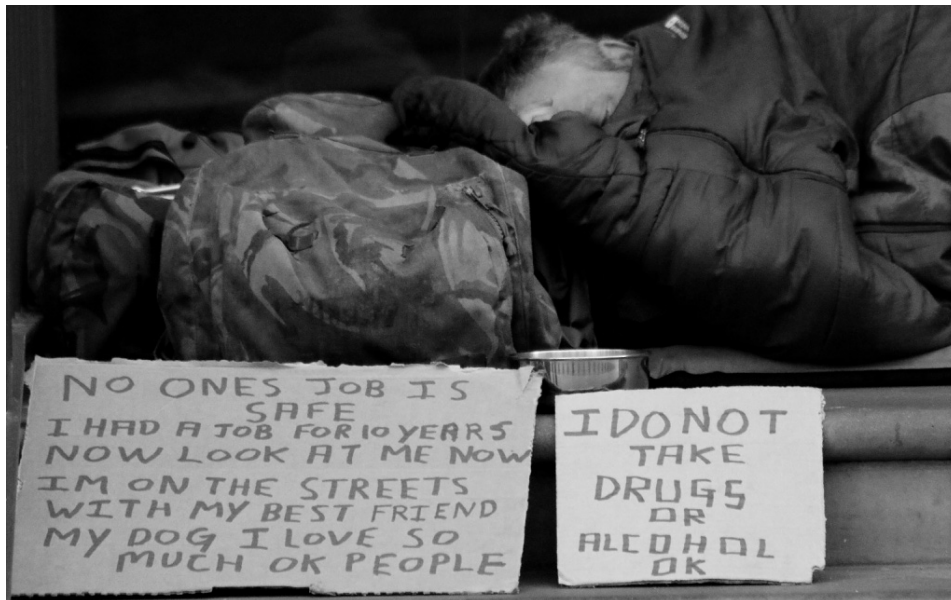 NO ONES JOB IS
SAFE
I HAD A JOB FOR 10 YEARS
NOW LOOK AT ME NOW
IM ON THE STREETS
WITH MY BEST FRIEND
MY DOG I LOVE SO
MUCH OK PEOPLE
I DO NOT
TAKE
DRUGS
OR
ALCOHOL
OK